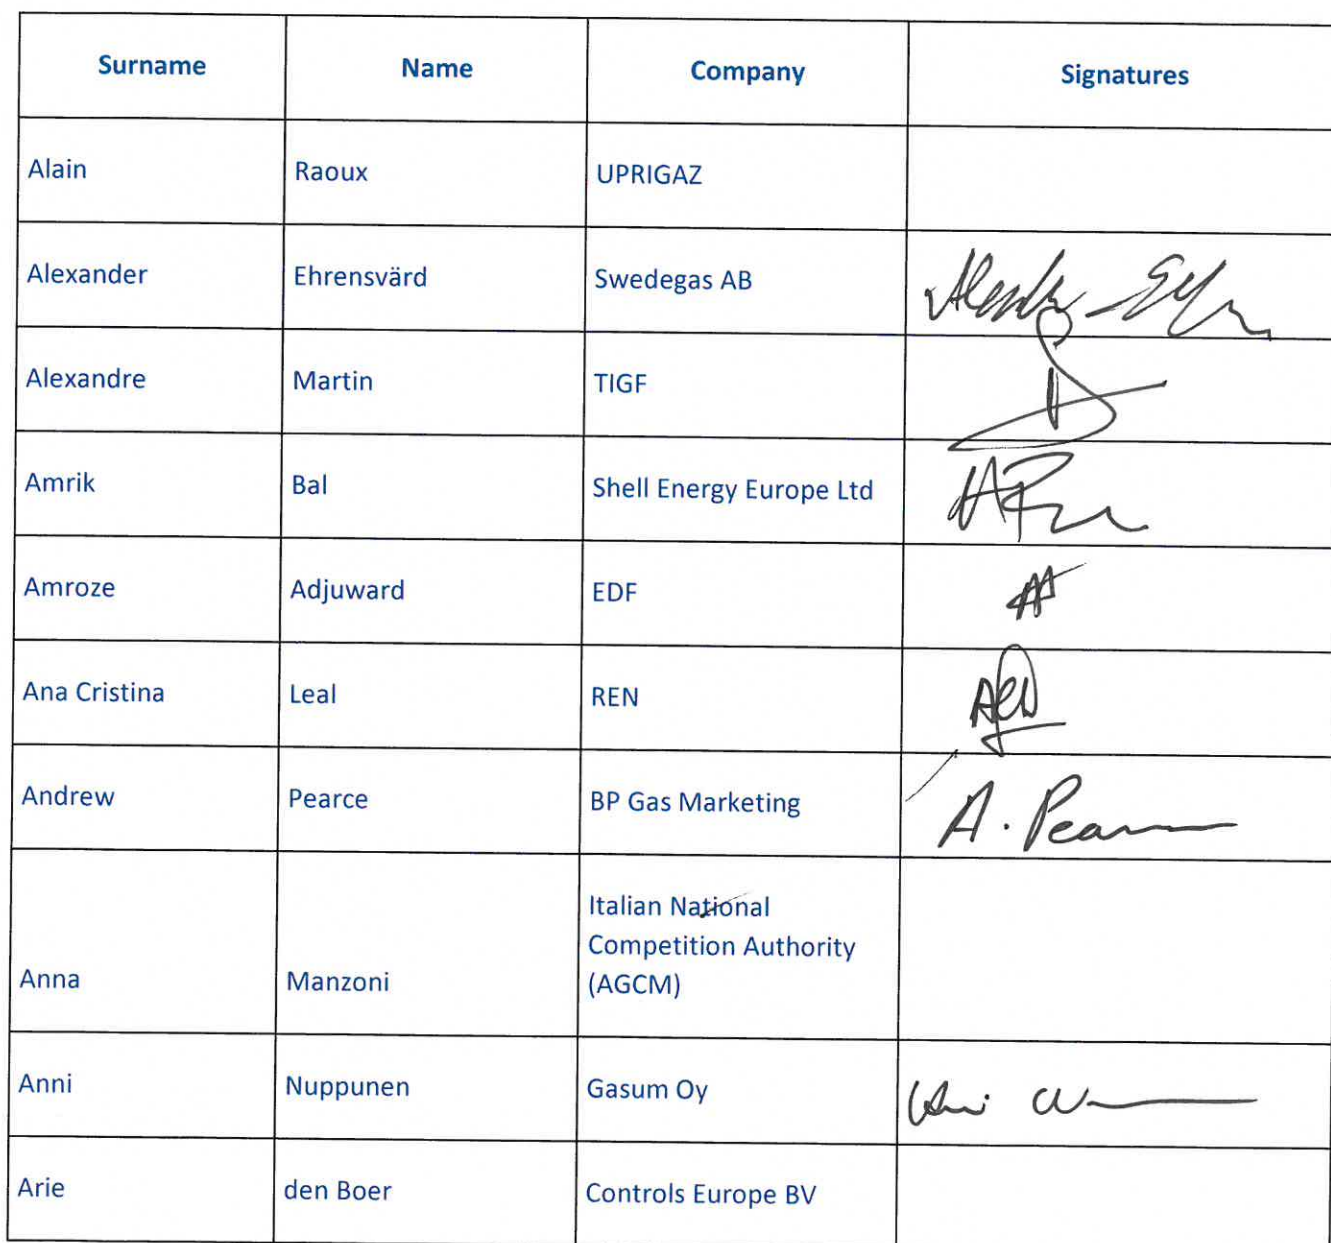 Surname Name Company Signatures
Alain Raoux UPRIGAZ
Alexander Ehrensvärd Swedegas AB
Alexandre Martin TIGF
Amrik Bal Shell Energy Europe Ltd
Amroze Adjuward EDF
Ana Cristina Leal REN
Andrew Pearce BP Gas Marketing A. Pearce
Italian National
Competition Authority
Anna Manzoni (AGCM)
Anni Nuppunen Gasum Oy
Arie den Boer Controls Europe BV